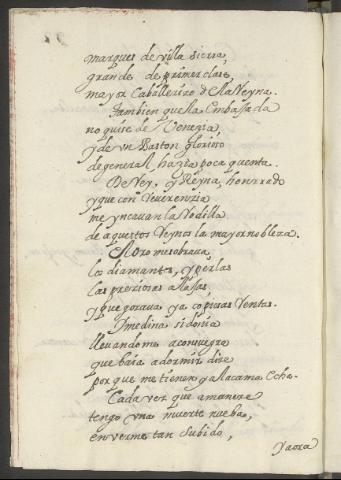 marques de villa sierra,
grande de primer clase,
mayor Caballerizo de la Reyna.
Tambien que la Embassada
no quise de Venezia,
y de un Baston glorioso
de general hazia poca quenta.
De Rey, y Reyna, honrrado
y que con Reverenzia
me yncavan la Rodilla
de aquestos Reynos la mayor nobleza.
El Oro me sobrava
los diamantes, y perlas
las presiosas allajas
y que gozava ya copiosas Rentas.
Y medina sidonia
llevandome a consuegra
que baia a dormir dize
por que me tienen ya la cama echa.
Cada vez que amaneze
tengo una muerte nueba,
en verme tan subido,
Y aora